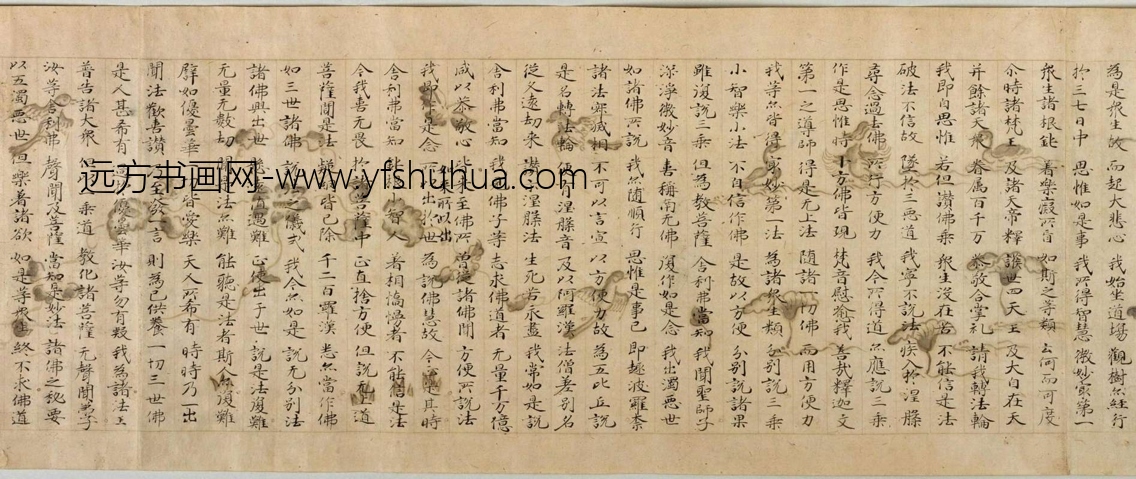 為是眾生故 而起大悲心 我始坐道場 觀樹亦經行
於三七日中 思惟如是事 我所得智慧 微妙最第一
眾生諸根鈍 著樂癡所盲 如斯之等類 云何而可度
尒時諸梵王 及諸天帝釋 護世四天王 及大自在天
并餘諸天眾 眷屬百千万 恭敬合掌礼 請我轉法輪
我即自思惟 若但讚佛乘 眾生沒在苦 不能信是法
破法不信故 墜於三惡道 我寧不說法 疾入於涅槃
尋念過去佛 所行方便力 我今所得道 亦應說三乘
作是思惟時 十方佛皆現 梵音慰喻我 善哉釋迦文
第一之導師 得是无上法 隨諸一切佛 而用方便力
我等亦皆得 最妙第一法 為諸眾生類 分別說三乘
小智樂小法 不自信作佛 是故以方便 分別說諸果
雖復說三乘 但為教菩薩 舍利弗當知 我聞聖師子
深淨微妙音 喜稱南无佛 復作如是念 我出濁惡世
如諸佛所說 我亦隨順行 思惟是事已 即趣波羅柰
諸法寂滅相 不可以言宣 以方便力故 為五比丘說
是名轉法輪 便有涅槃音 及以阿羅漢 法僧差別名
從久遠劫來 讚示涅槃法 生死苦永盡 我常如是說
舍利弗當知 我見佛子等 志求佛道者 无量千万億
咸以恭敬心 皆來至佛所 曾從諸佛聞 方便所說法
來所以出
我即作是念 出於世 為說佛慧故 今正是其時
舍利弗當知 鈍根小智人 著相憍慢者 不能信是法
今我喜无畏 於諸菩薩中 正直捨方便 但說无上道
菩薩聞是法 疑網皆已除 千二百羅漢 悉亦當作佛
如三世諸佛 說法之儀式 我今亦如是 說无分別法
諸佛興出世 懸遠值遇難 正使出于世 說是法復難
无量无數劫 聞是法亦難 能聽是法者 斯人亦復難
譬如優曇華 一切皆愛樂 天人所希有 時時乃一出
聞法歡喜讚 乃至發一言 則為已供養 一切三世佛
是人甚希有 過於優曇華 汝等勿有疑 我為諸法王
普告諸大眾 但以一乘道 教化諸菩薩 无聲聞弟子
汝等舍利弗 聲聞及菩薩 當知是妙法 諸佛之秘要
以五濁惡世 但樂著諸欲 如是等眾生 終不求佛道
远方书画网-www.yfshuhua.com